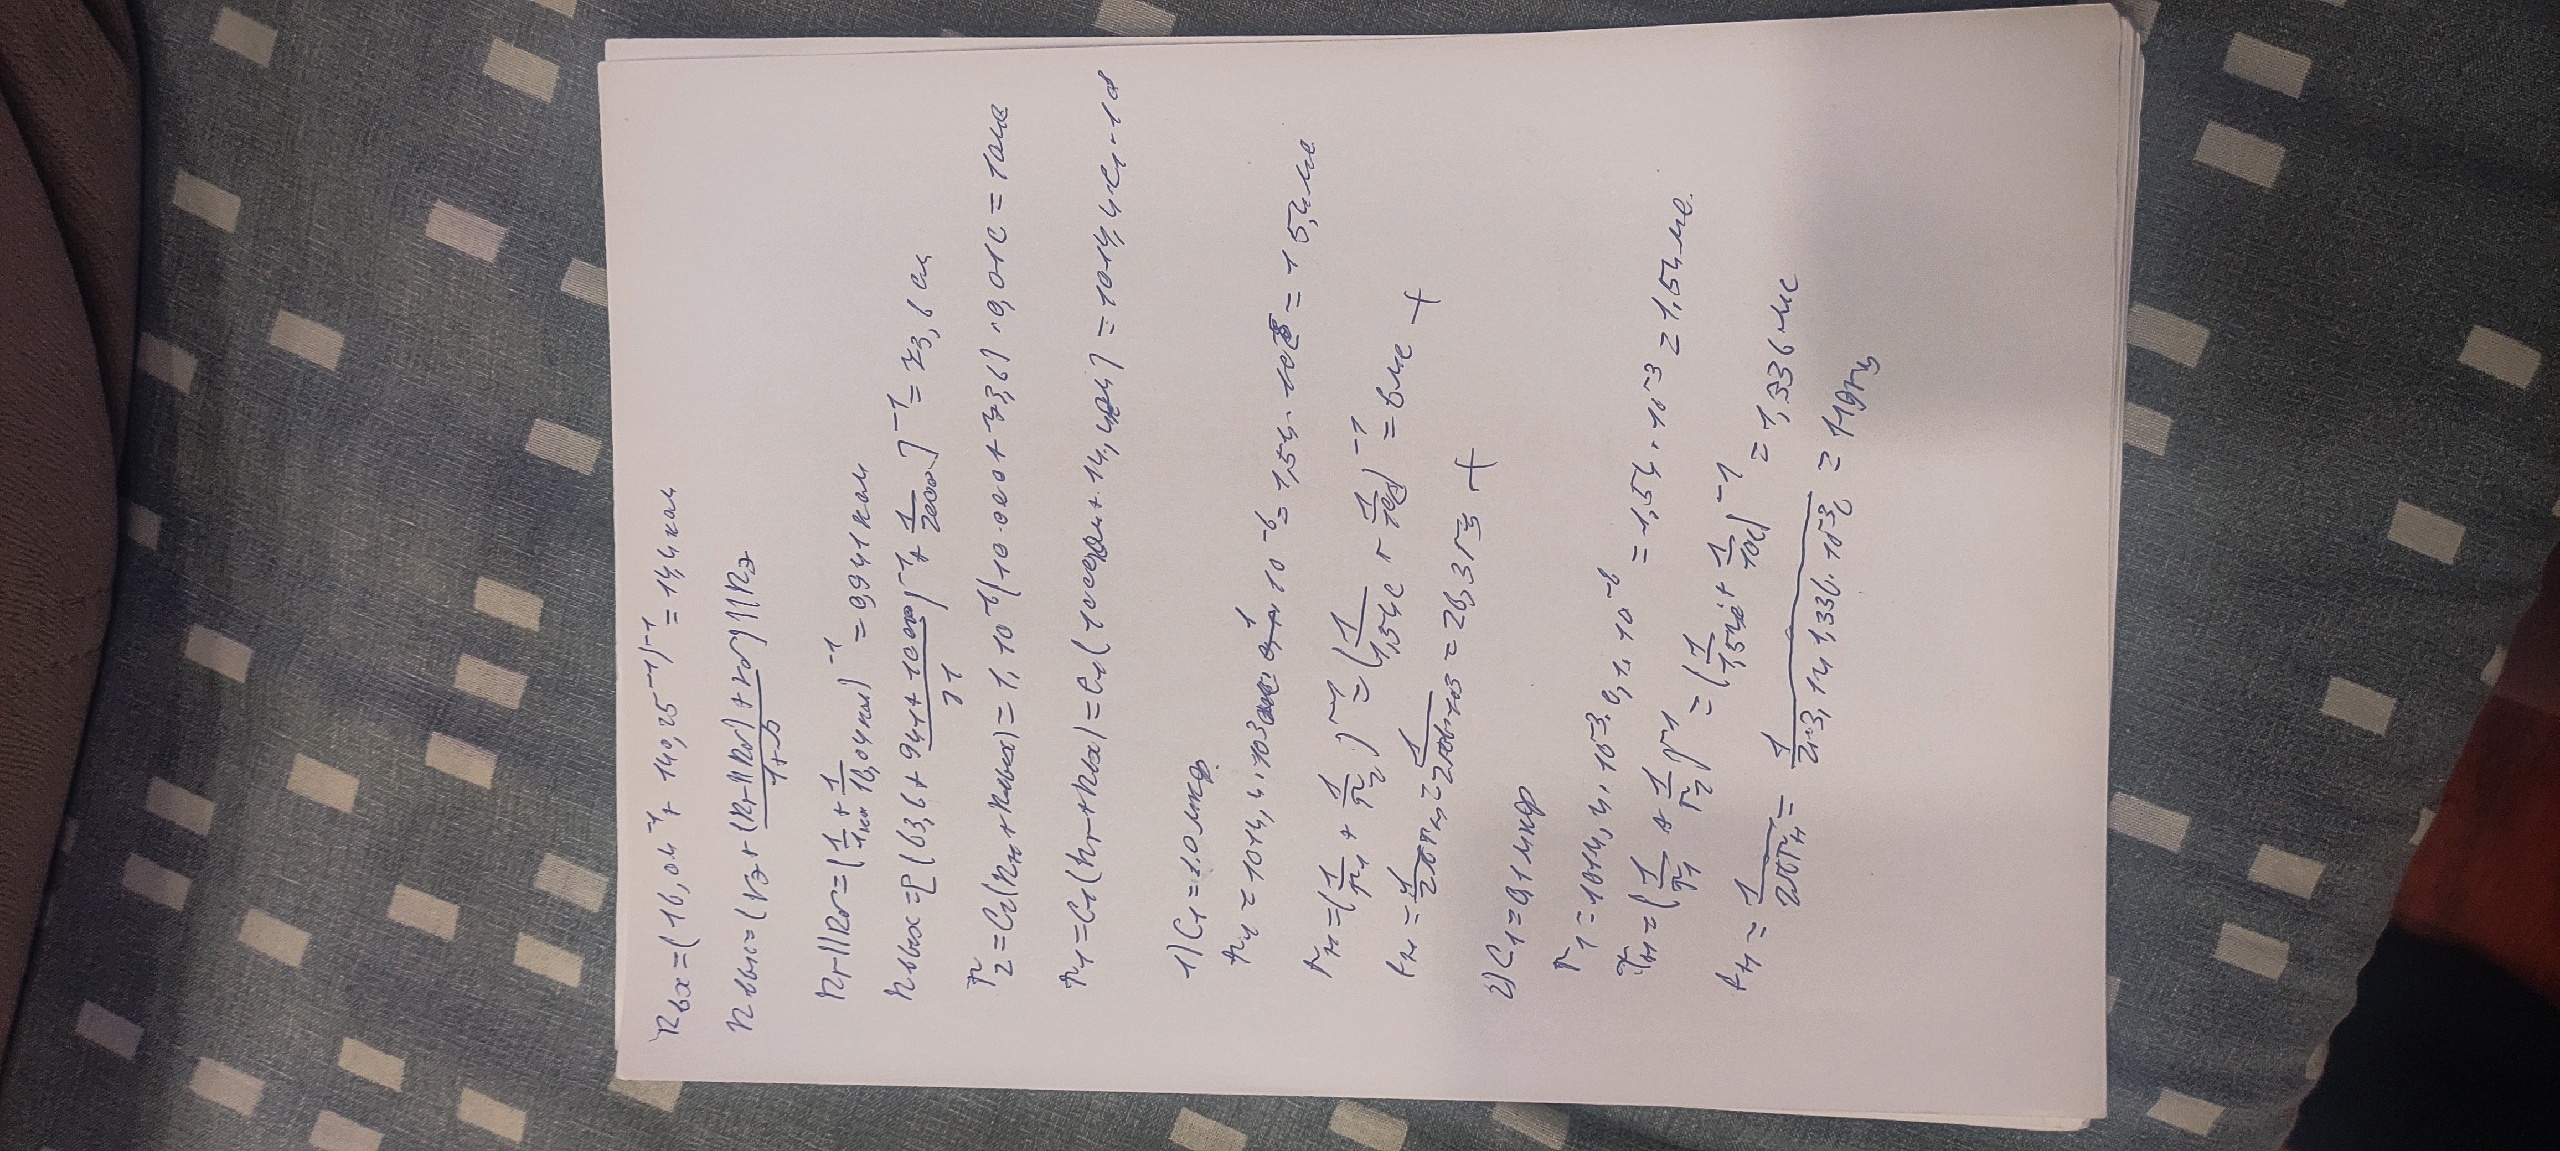 Rвх = (16,04⁻¹ + 140,25⁻¹)⁻¹ = 14,4 ком
Rвых = (rэ + (Rг||Rб) + rб / 1+β) || Rэ
Rг||Rб = (1/1ком + 1/16,04ком)⁻¹ = 0,941 ком
Rвых = [(63,6 + 941 + 100 / 31)⁻¹ + 1/2000]⁻¹ = 73,6 ом
τ2 = C2(Rн + Rвых) = 1,10⁻⁶(10.000 + 73,6) = 0,01с = 10мс
τ1 = C1(Rг + Rвх) = C1( + 14,4 ) = 1014,4·C1·10
1) C1 = 1.0 мкф
= 1014,4·10³ 1·10⁻⁶ = 1,54· = 15,4мс
τн = (1/τ1 + 1/τ2)⁻¹ = (1/1,54с + 1/10с)⁻¹ = 6мс +
fн = 1/2πτн = = 26,3 Гц +
2) C1 = 0,1 мкф
τ1 = 1014,4·10⁻³·0,1·10⁻⁶ = 1,54·10⁻³ = 1,54мс.
τн = (1/τ1 + 1/τ2)⁻¹ = (1/1,54с + 1/10с)⁻¹ = 1,336мс
fн = 1/2πτн = 1/2·3,14·1,336·10⁻³с = 119гц